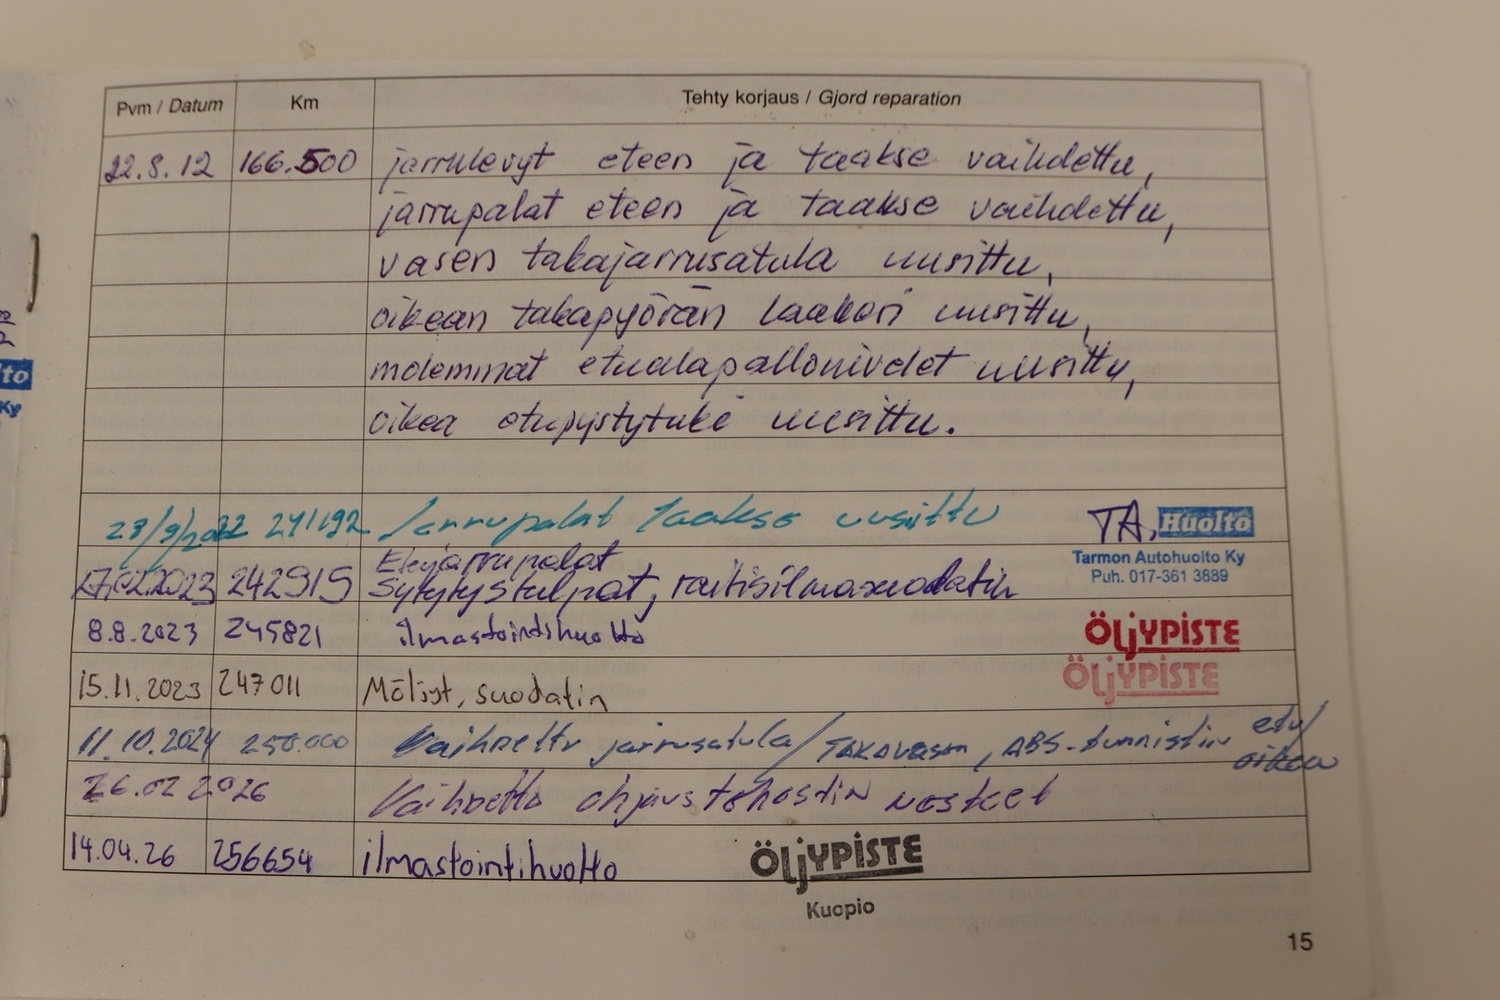 Pvm / Datum Km Tehty korjaus / Gjord reparation
22.8.12 166.500 jarrulevyt eteen ja taakse vaihdettu,
jarrupalat eteen ja taakse vaihdettu,
vasen takajarrusatula uusittu,
oikean takapyörän laakeri uusittu,
molemmat etualapallonivelet uusittu,
oikea etupystytuki uusittu.
241192 Jarrupalat taakse uusittu TA. Huolto
Tarmon Autohuolto Ky
Puh. 017-361 3889
Etujarrupalat
17.02.2023 242915 Sytytystulpat, raitisilmasuodatin
8.8.2023 245821 ilmastointihuolto ÖLJYPISTE
ÖLJYPISTE
15.11.2023 247011 Möljyt, suodatin
11.10.2024 250.000 Vaihdettu jarrusatula/TAKAVASEN, ABS-tunnistin etu/
oikea
26.02 2026 Vaihdettu ohjaustehostin nesteet
14.04.26 256654 ilmastointihuolto ÖLJYPISTE
Kuopio
15
to
Ky